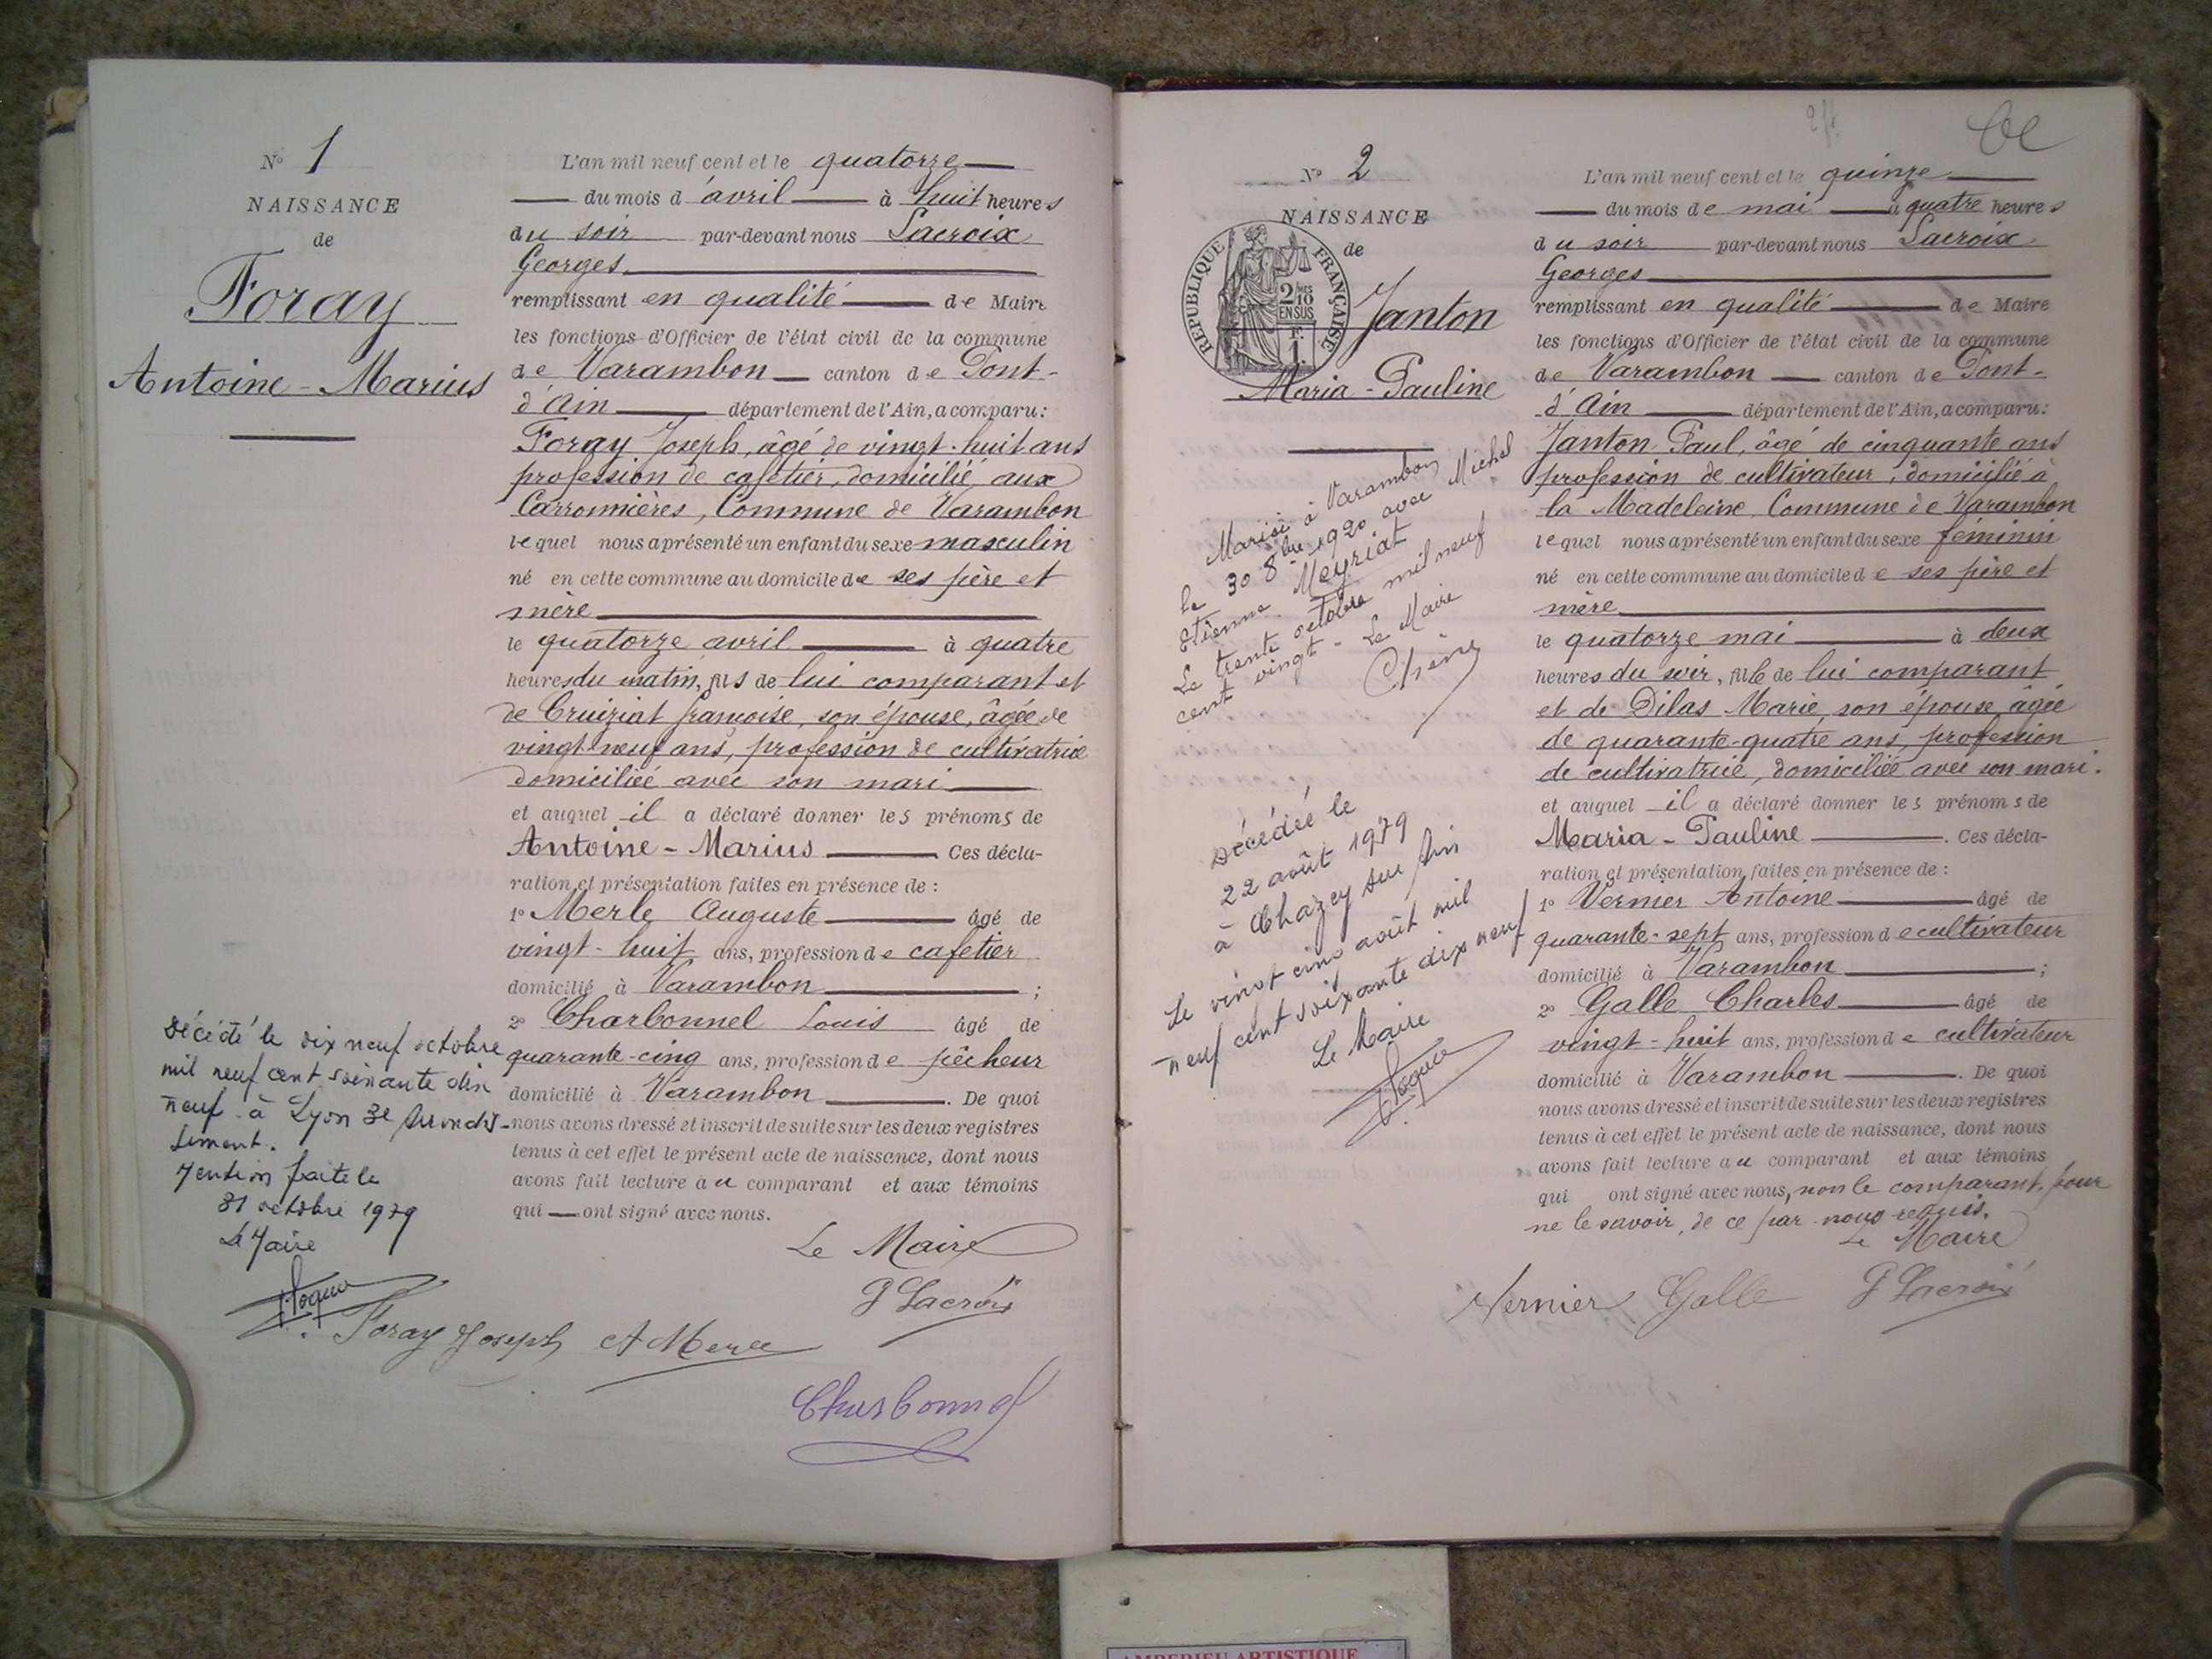 N° 1
NAISSANCE
de
Foray
Antoine - Marius
L'an mil neuf cent et le quatorze
du mois d'avril à huit heures
du soir par-devant nous Lacroix
Georges
remplissant en qualité de Maire
les fonctions d'Officier de l'état civil de la commune
de Varambon canton de Pont-
d'Ain département de l'Ain, a comparu:
Foray Joseph, âgé de vingt-huit ans
profession de cafetier, domicilié aux
Carronnières, Commune de Varambon
lequel nous a présenté un enfant du sexe masculin
né en cette commune au domicile de ses père et
mère
le quatorze avril à quatre
heures du matin, fils de lui comparant et
de Cruiziat françoise, son épouse, âgée de
vingt-neuf ans, profession de cultivatrice
domiciliée avec son mari
et auquel il a déclaré donner les prénoms de
Antoine - Marius Ces décla-
ration et présentation faites en présence de :
1° Merle Auguste âgé de
vingt-huit ans, profession de cafetier
domicilié à Varambon ;
2° Charbonnel Louis âgé de
quarante-cinq ans, profession de pêcheur
domicilié à Varambon . De quoi
nous avons dressé et inscrit de suite sur les deux registres
tenus à cet effet le présent acte de naissance, dont nous
avons fait lecture au comparant et aux témoins
qui ont signé avec nous.
Le Maire
G Lacroix
Décédé le dix neuf octobre
mil neuf cent soixante dix
neuf à Lyon 3e Arrondis-
sement.
Mention faite le
31 octobre 1979
Le Maire
Foray Joseph A Merle
Charbonnel
N° 2
NAISSANCE
de
REPUBLIQUE FRANÇAISE
2 MES
10
EN SUS
F.
1.
Janton
Maria - Pauline
Mariée à Varambon
le 30 8bre 1920 avec Michel
Etienne Meyriat
Le trente octobre mil neuf
cent vingt - Le Maire
Décédée le
22 août 1979
à Chazey sur Ain
Le vingt cinq août mil
neuf cent soixante dix neuf
Le Maire
L'an mil neuf cent et le quinze
du mois de mai à quatre heures
du soir par-devant nous Lacroix
Georges
remplissant en qualité de Maire
les fonctions d'Officier de l'état civil de la commune
de Varambon canton de Pont-
d'Ain département de l'Ain, a comparu:
Janton Paul, âgé de cinquante ans
profession de cultivateur, domicilié à
la Madeleine Commune de Varambon
lequel nous a présenté un enfant du sexe féminin
né en cette commune au domicile de ses père et
mère
le quatorze mai à deux
heures du soir, fille de lui comparant
et de Dilas Marie, son épouse âgée
de quarante-quatre ans, profession
de cultivatrice, domiciliée avec son mari.
et auquel il a déclaré donner les prénoms de
Maria - Pauline . Ces décla-
ration et présentation faites en présence de :
1° Vernier Antoine âgé de
quarante-sept ans, profession de cultivateur
domicilié à Varambon ;
2° Galle Charles âgé de
vingt-huit ans, profession de cultivateur
domicilié à Varambon . De quoi
nous avons dressé et inscrit de suite sur les deux registres
tenus à cet effet le présent acte de naissance, dont nous
avons fait lecture au comparant et aux témoins
qui ont signé avec nous, non le comparant, pour
ne le savoir, de ce par nous requis.
Le Maire
Vernier Galle G Lacroix
AMBERIEU ARTISTIQUE